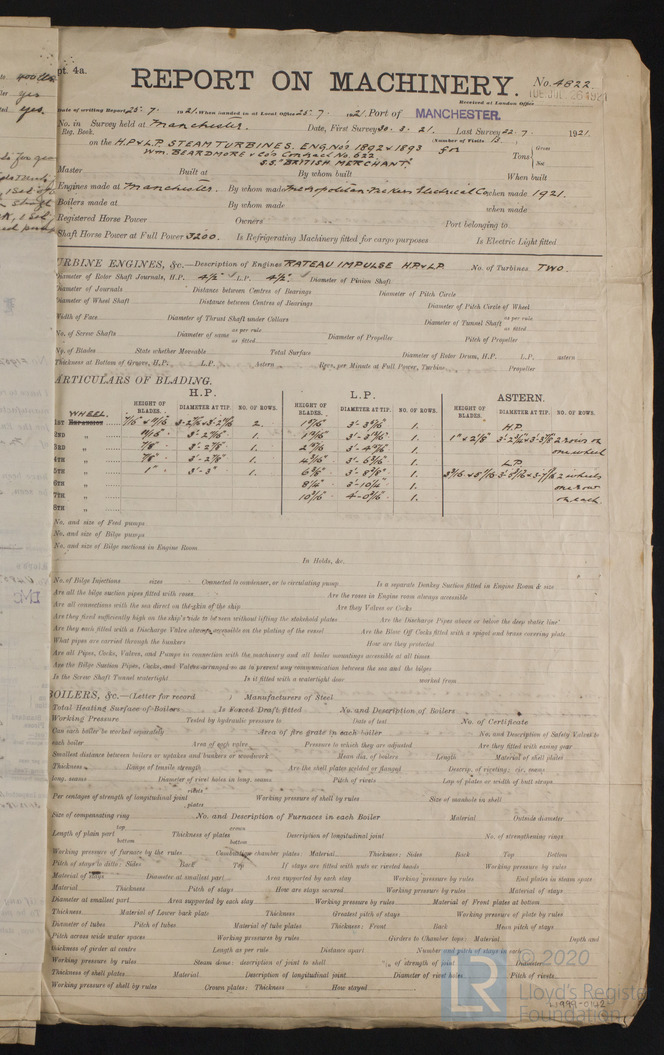 pt. 4a.
REPORT ON MACHINERY.
No. 4822
Received at London Office
TUE. JUL. 26 1921
Date of writing Report 25. 7. 1921. When handed in at Local Office 25. 7. 1921. Port of MANCHESTER.
No. in Survey held at Manchester. Date, First Survey 30. 3. 21. Last Survey 22. 7. 1921.
Reg. Book. (Number of Visits 13.)
on the H.P. & L.P. STEAM TURBINES. ENG. NOS 1892 & 1893 for Tons Gross Net
Wm. BEARDMORE & Co's Contract No. 622
S.S. "BRITISH MERCHANT."
Master Built at By whom built When built
Engines made at Manchester. By whom made Metropolitan-Vickers Electrical Co. when made 1921.
Boilers made at By whom made when made
Registered Horse Power Owners Port belonging to
Shaft Horse Power at Full Power 3200. Is Refrigerating Machinery fitted for cargo purposes Is Electric Light fitted
TURBINE ENGINES, &c.—Description of Engines RATEAU IMPULSE H.P. & L.P. No. of Turbines TWO.
Diameter of Rotor Shaft Journals, H.P. 4½" L.P. 4½" Diameter of Pinion Shaft
Diameter of Journals Distance between Centres of Bearings Diameter of Pitch Circle
Diameter of Wheel Shaft Distance between Centres of Bearings Diameter of Pitch Circle of Wheel
Width of Face Diameter of Thrust Shaft under Collars Diameter of Tunnel Shaft as per rule as fitted
No. of Screw Shafts Diameter of same as per rule as fitted Diameter of Propeller Pitch of Propeller
No. of Blades State whether Moveable Total Surface Diameter of Rotor Drum, H.P. L.P. astern
Thickness at Bottom of Groove, H.P. L.P. Astern Revs. per Minute at Full Power, Turbine Propeller
PARTICULARS OF BLADING.
H.P. L.P. ASTERN.
HEIGHT OF BLADES. DIAMETER AT TIP. NO. OF ROWS. HEIGHT OF BLADES. DIAMETER AT TIP. NO. OF ROWS. HEIGHT OF BLADES. DIAMETER AT TIP. NO. OF ROWS.
WHEEL.
1ST EXPANSION 2. 1. H.P.
2ND " 1. 1. 2 rows on
3RD " 3'-2⅞" 1. 1. one wheel
4TH " 3'-2⅞" 1. 1. L.P.
5TH " 1" 3'-3" 1. 1. 2 wheels
6TH " 8¼" 3'-10¼" 1. one row
7TH " 1. on each.
8TH "
No. and size of Feed pumps
No. and size of Bilge pumps
No. and size of Bilge suctions in Engine Room
In Holds, &c.
No. of Bilge Injections sizes Connected to condenser, or to circulating pump Is a separate Donkey Suction fitted in Engine Room & size
Are all the bilge suction pipes fitted with roses Are the roses in Engine room always accessible
Are all connections with the sea direct on the skin of the ship Are they Valves or Cocks
Are they fixed sufficiently high on the ship's side to be seen without lifting the stokehold plates Are the Discharge Pipes above or below the deep water line
Are they each fitted with a Discharge Valve always accessible on the plating of the vessel Are the Blow Off Cocks fitted with a spigot and brass covering plate
What pipes are carried through the bunkers How are they protected
Are all Pipes, Cocks, Valves, and Pumps in connection with the machinery and all boiler mountings accessible at all times
Are the Bilge Suction Pipes, Cocks, and Valves arranged so as to prevent any communication between the sea and the bilges
Is the Screw Shaft Tunnel watertight Is it fitted with a watertight door worked from
BOILERS, &c.—(Letter for record ) Manufacturers of Steel
Total Heating Surface of Boilers Is Forced Draft fitted No. and Description of Boilers
Working Pressure Tested by hydraulic pressure to Date of test No. of Certificate
Can each boiler be worked separately Area of fire grate in each boiler No. and Description of Safety Valves to
each boiler Area of each valve Pressure to which they are adjusted Are they fitted with easing gear
Smallest distance between boilers or uptakes and bunkers or woodwork Mean dia. of boilers Length Material of shell plates
Thickness Range of tensile strength Are the shell plates welded or flanged Descrip. of riveting: cir. seams
long. seams Diameter of rivet holes in long. seams Pitch of rivets Lap of plates or width of butt straps
Per centages of strength of longitudinal joint rivets plates Working pressure of shell by rules Size of manhole in shell
Size of compensating ring No. and Description of Furnaces in each Boiler Material Outside diameter
Length of plain part top bottom Thickness of plates crown bottom Description of longitudinal joint No. of strengthening rings
Working pressure of furnace by the rules Combustion chamber plates: Material Thickness: Sides Back Top Bottom
Pitch of stays to ditto: Sides Back Top If stays are fitted with nuts or riveted heads Working pressure by rules
Material of stays Diameter at smallest part Area supported by each stay Working pressure by rules End plates in steam space
Material Thickness Pitch of stays How are stays secured Working pressure by rules Material of stays
Diameter at smallest part Area supported by each stay Working pressure by rules Material of Front plates at bottom
Thickness Material of Lower back plate Thickness Greatest pitch of stays Working pressure of plate by rules
Diameter of tubes Pitch of tubes Material of tube plates Thickness: Front Back Mean pitch of stays
Pitch across wide water spaces Working pressures by rules Girders to Chamber tops: Material Depth and
thickness of girder at centre Length as per rule Distance apart Number and pitch of stays in each
Working pressure by rules Steam dome: description of joint to shell % of strength of joint Diameter
Thickness of shell plates Material Description of longitudinal joint Diameter of rivet holes Pitch of rivets
Working pressure of shell by rules Crown plates: Thickness How stayed
LR
© 2020
Lloyd's Register
Foundation